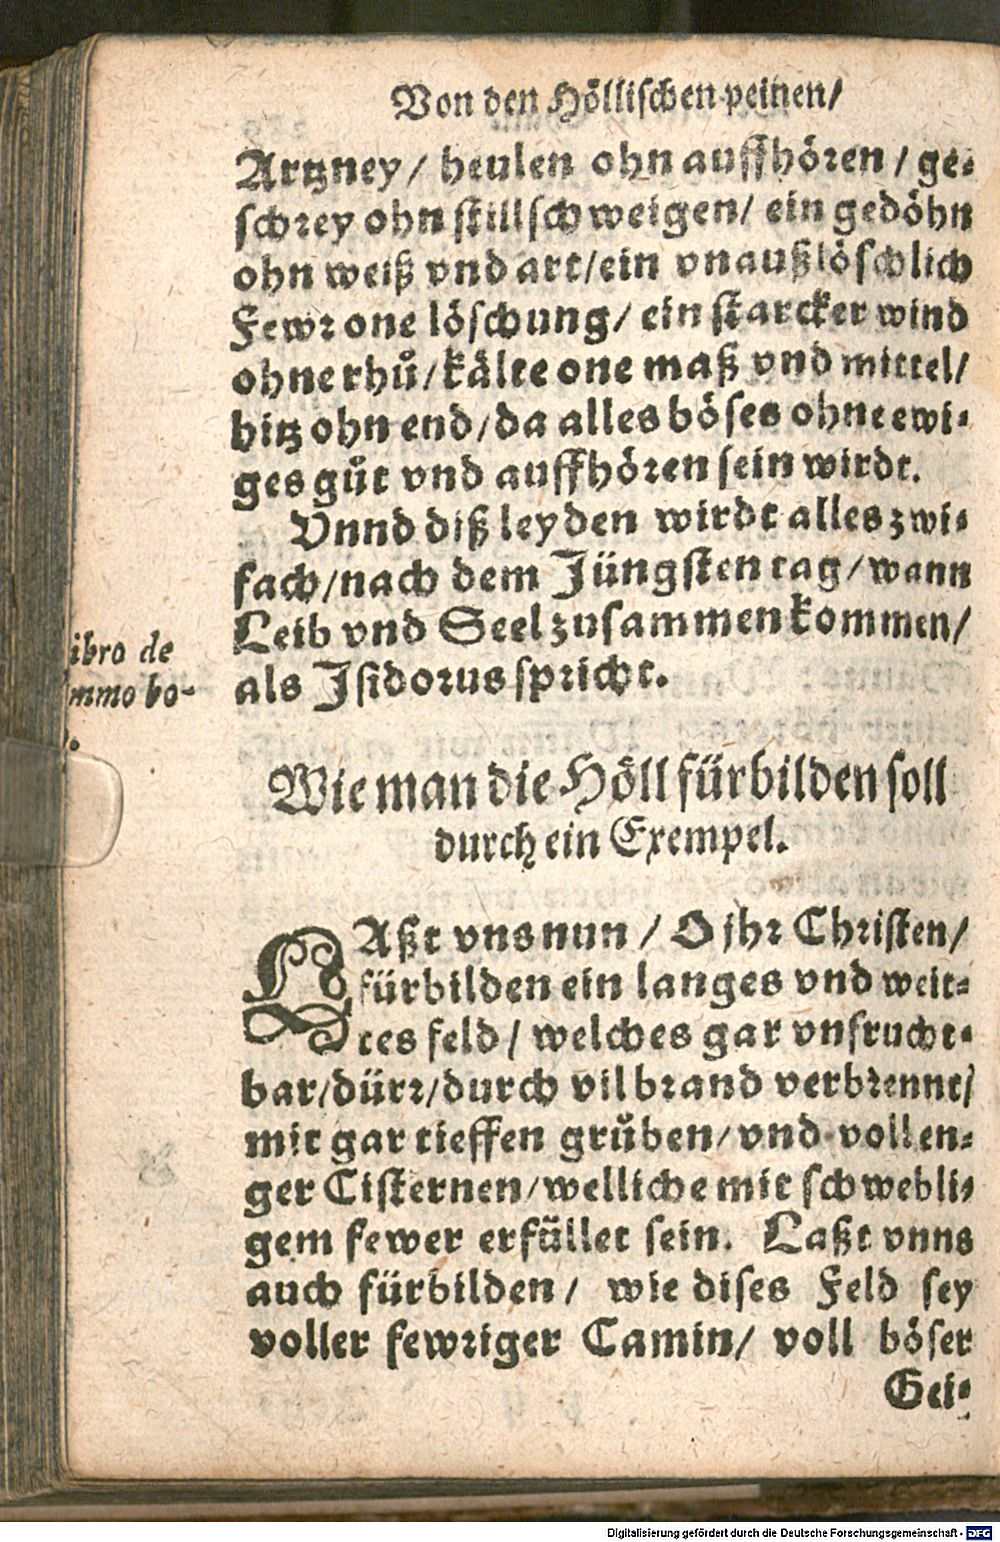 Von den Höllischen peinen/
Artzney/ heulen ohn auffhören/ ge-
schrey ohn stillschweigen/ ein gedöhn
ohn weiß vnd art/ein vnaußlöschlich
Fewr one löschung/ ein starcker wind
ohne rhů/kälte one maß vnd mittel/
hitz ohn end/da alles böses ohne ewi-
ges gůt vnd auffhören sein wirdt.
Vnnd diß leyden wirdt alles zwi-
fach/nach dem Jüngsten tag/wann
Leib vnd Seel zusammen kommen/
als Isidorus spricht.
ibro de
mmo bo-
Wie man die Höll fürbilden soll
durch ein Exempel.
LAßt vns nun / O jhr Christen/
fürbilden ein langes vnd weit-
tes feld / welches gar vnfrucht-
bar/dürr/durch vil brand verbrennt/
mit gar tieffen grůben/vnd vollen-
ger Cisternen/welliche mit schwebli-
gem fewer erfüllet sein. Laßt vnns
auch fürbilden/ wie dises Feld sey
voller fewriger Camin/ voll böser
Gei-
Digitalisierung gefördert durch die Deutsche Forschungsgemeinschaft - DFG